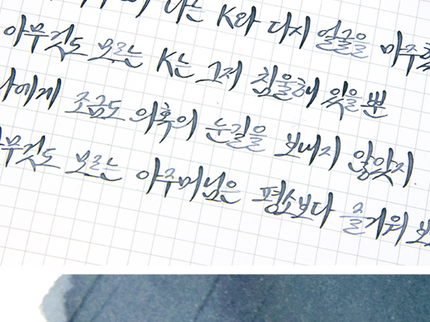 나는 K와 다시 얼굴을 마주
아무것도 모르는 K는 그저 침울해 있을 뿐
에게 조금도 의혹의 눈길을 보내지 않았지
무것도 모르는 아주머님은 평소보다 즐거워 보